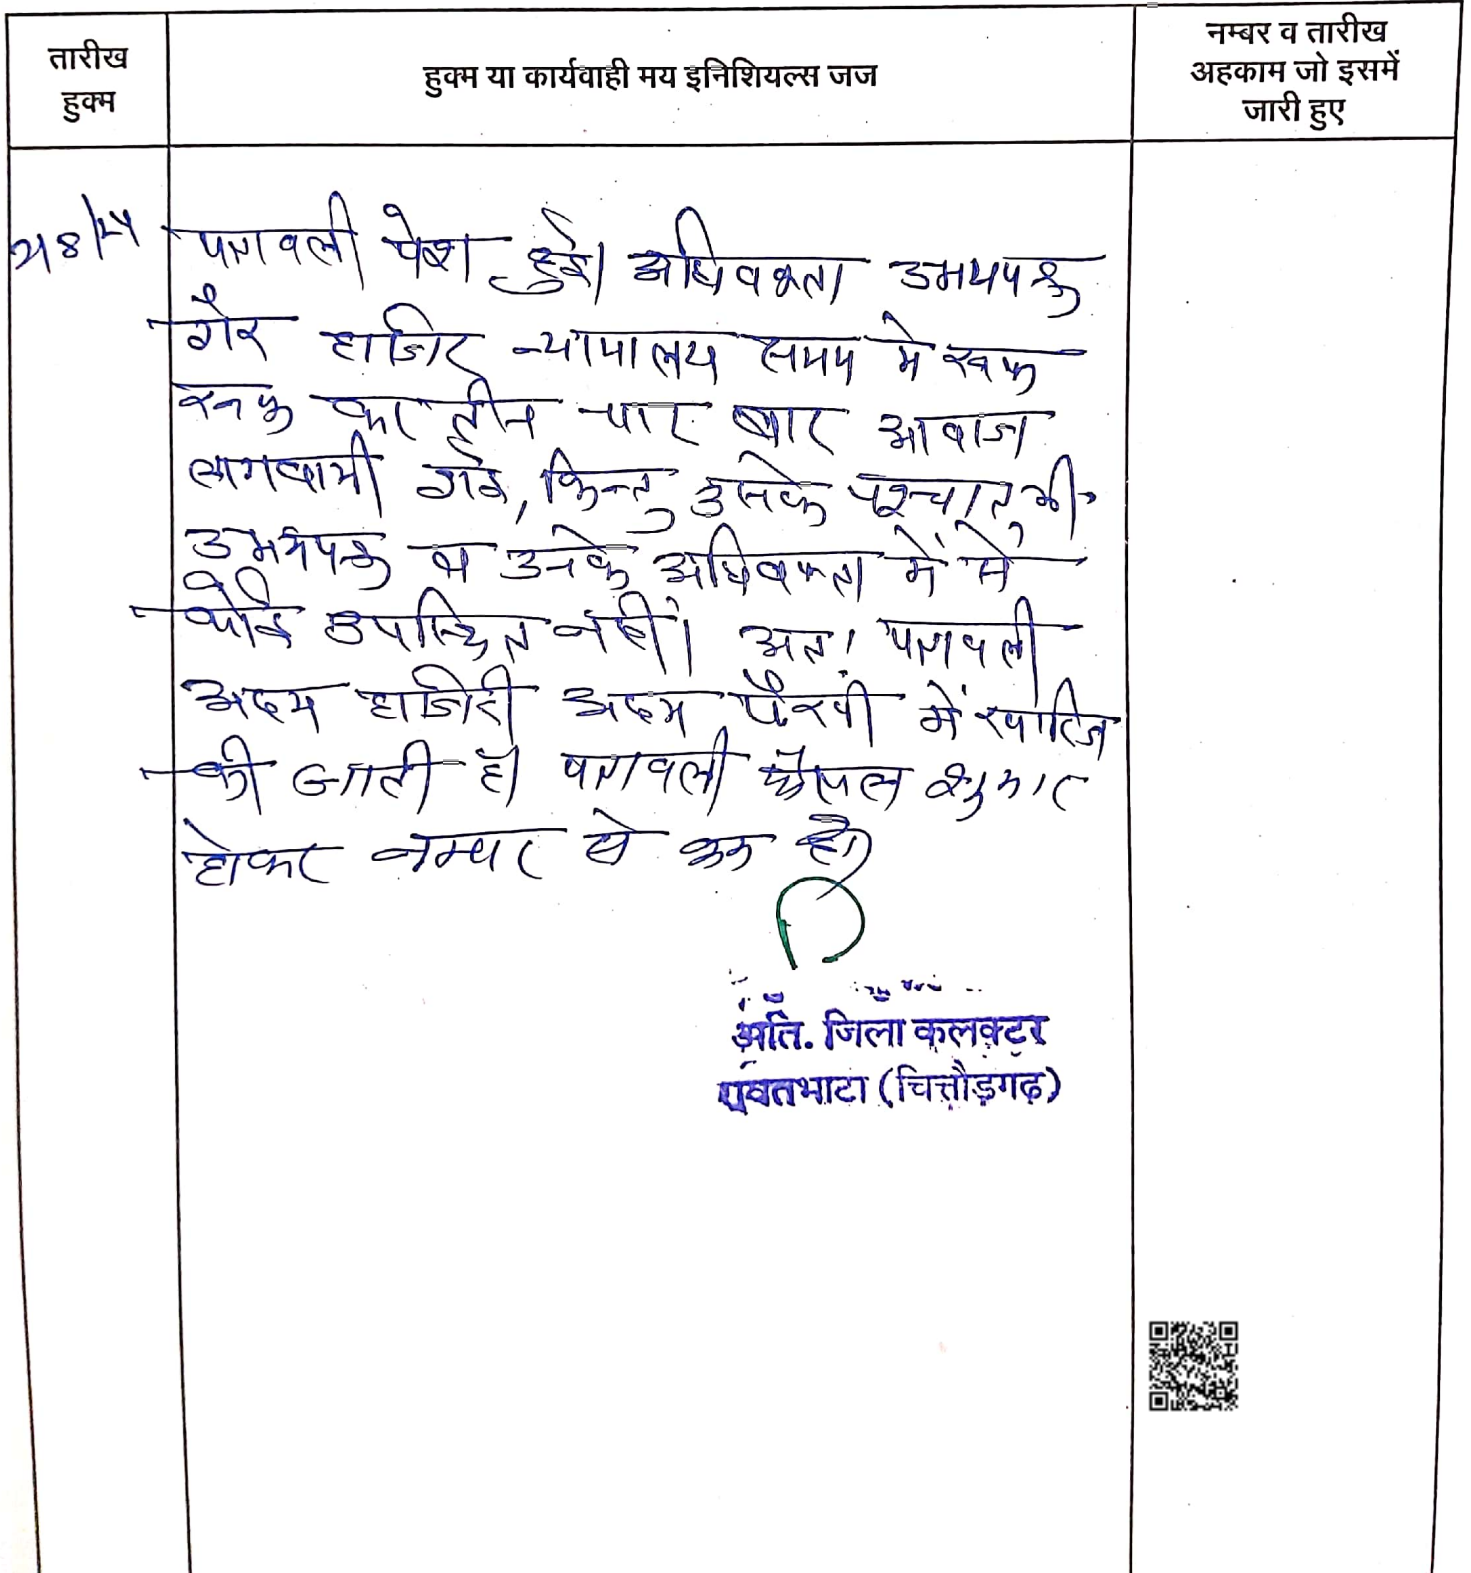 तारीख
हुक्म
हुक्म या कार्यवाही मय इनिशियल्स जज
नम्बर व तारीख
अहकाम जो इसमें
जारी हुए
पत्रावली पेश हुई। अधिवक्ता उभयपक्ष
गैर हाजिर न्यायालय समय में रूक
रूक कर तीन चार बार आवाज
लगवायी गई, किन्तु उसके पश्चात् भी
उभयपक्ष व उनके अधिवक्ता में से
कोई उपस्थित नहीं। अतः पत्रावली
अदम हाजिरी अदम पैरवी में खारिज
की जाती है। पत्रावली फैसल शुमार
होकर नम्बर से कम हो।
अति. जिला कलक्टर
रावतभाटा (चित्तौड़गढ़)